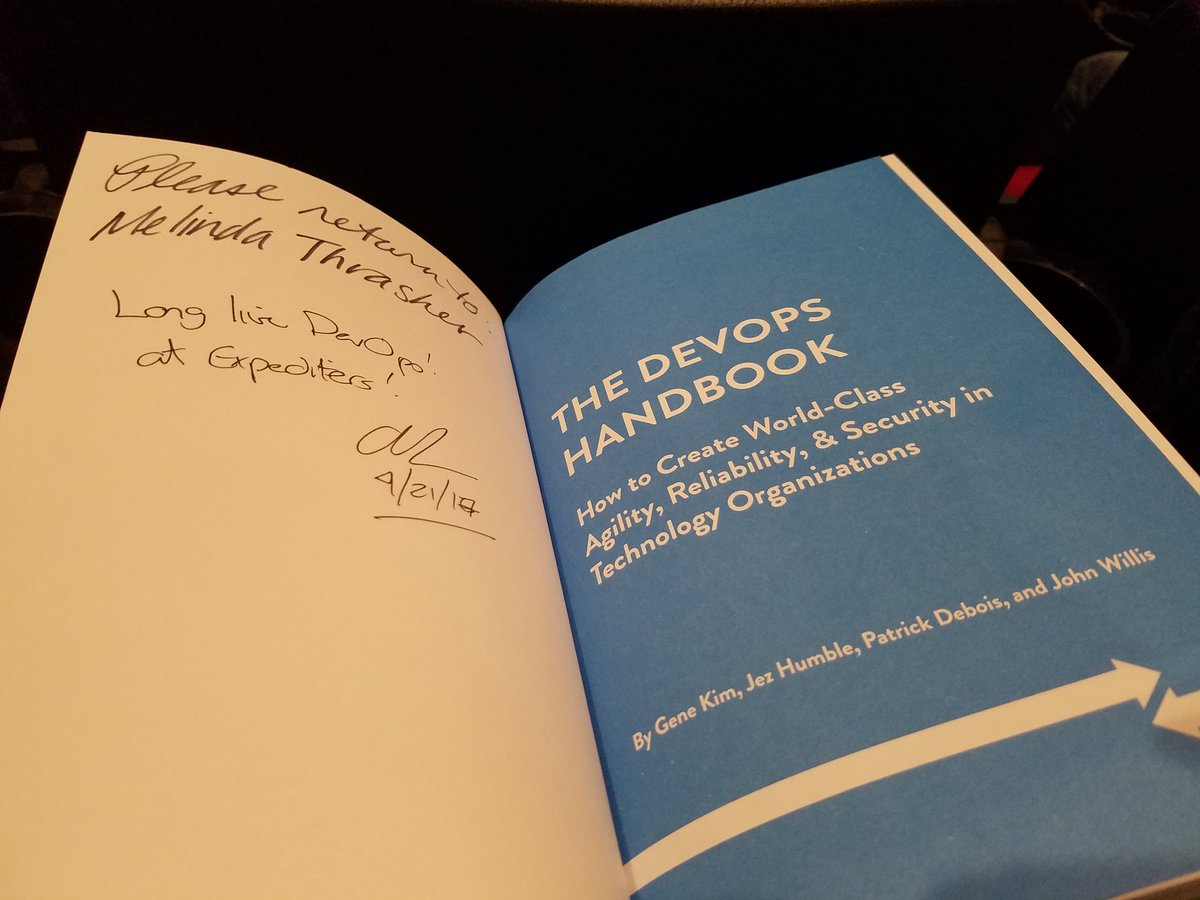 Please return to:
Melinda Thrasher
Long live DevOps!
at Expeditors!
4/21/17
THE DEVOPS
HANDBOOK
How to Create World-Class
Agility, Reliability, & Security in
Technology Organizations
By Gene Kim, Jez Humble, Patrick Debois, and John Willis